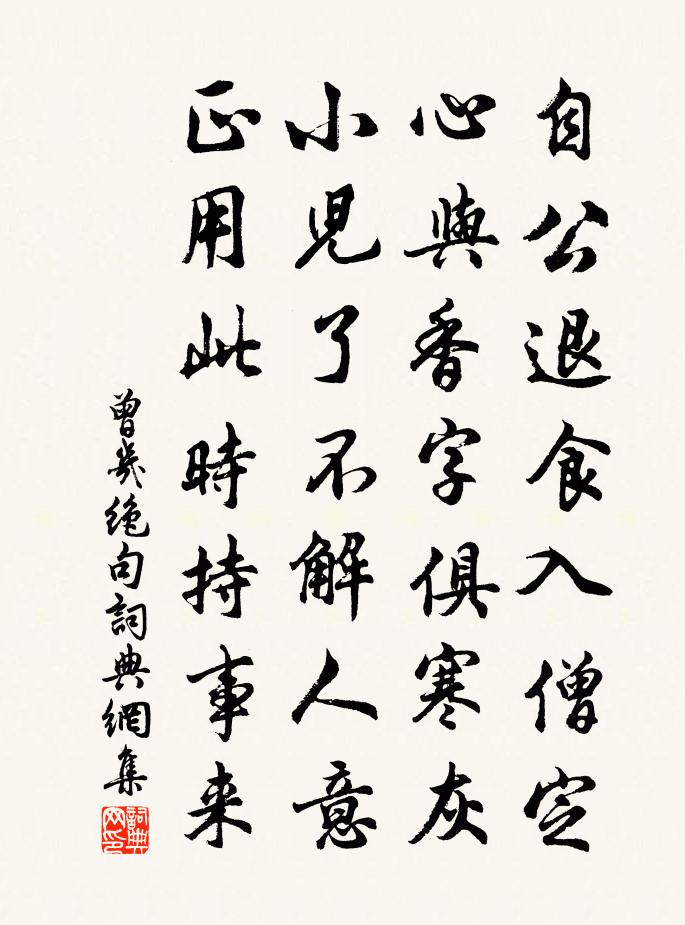 自公退食入僧定
心與香字俱寒灰
小兒了不解人意
正用此時持事来
曾幾絕句詞典網集
詞典网印